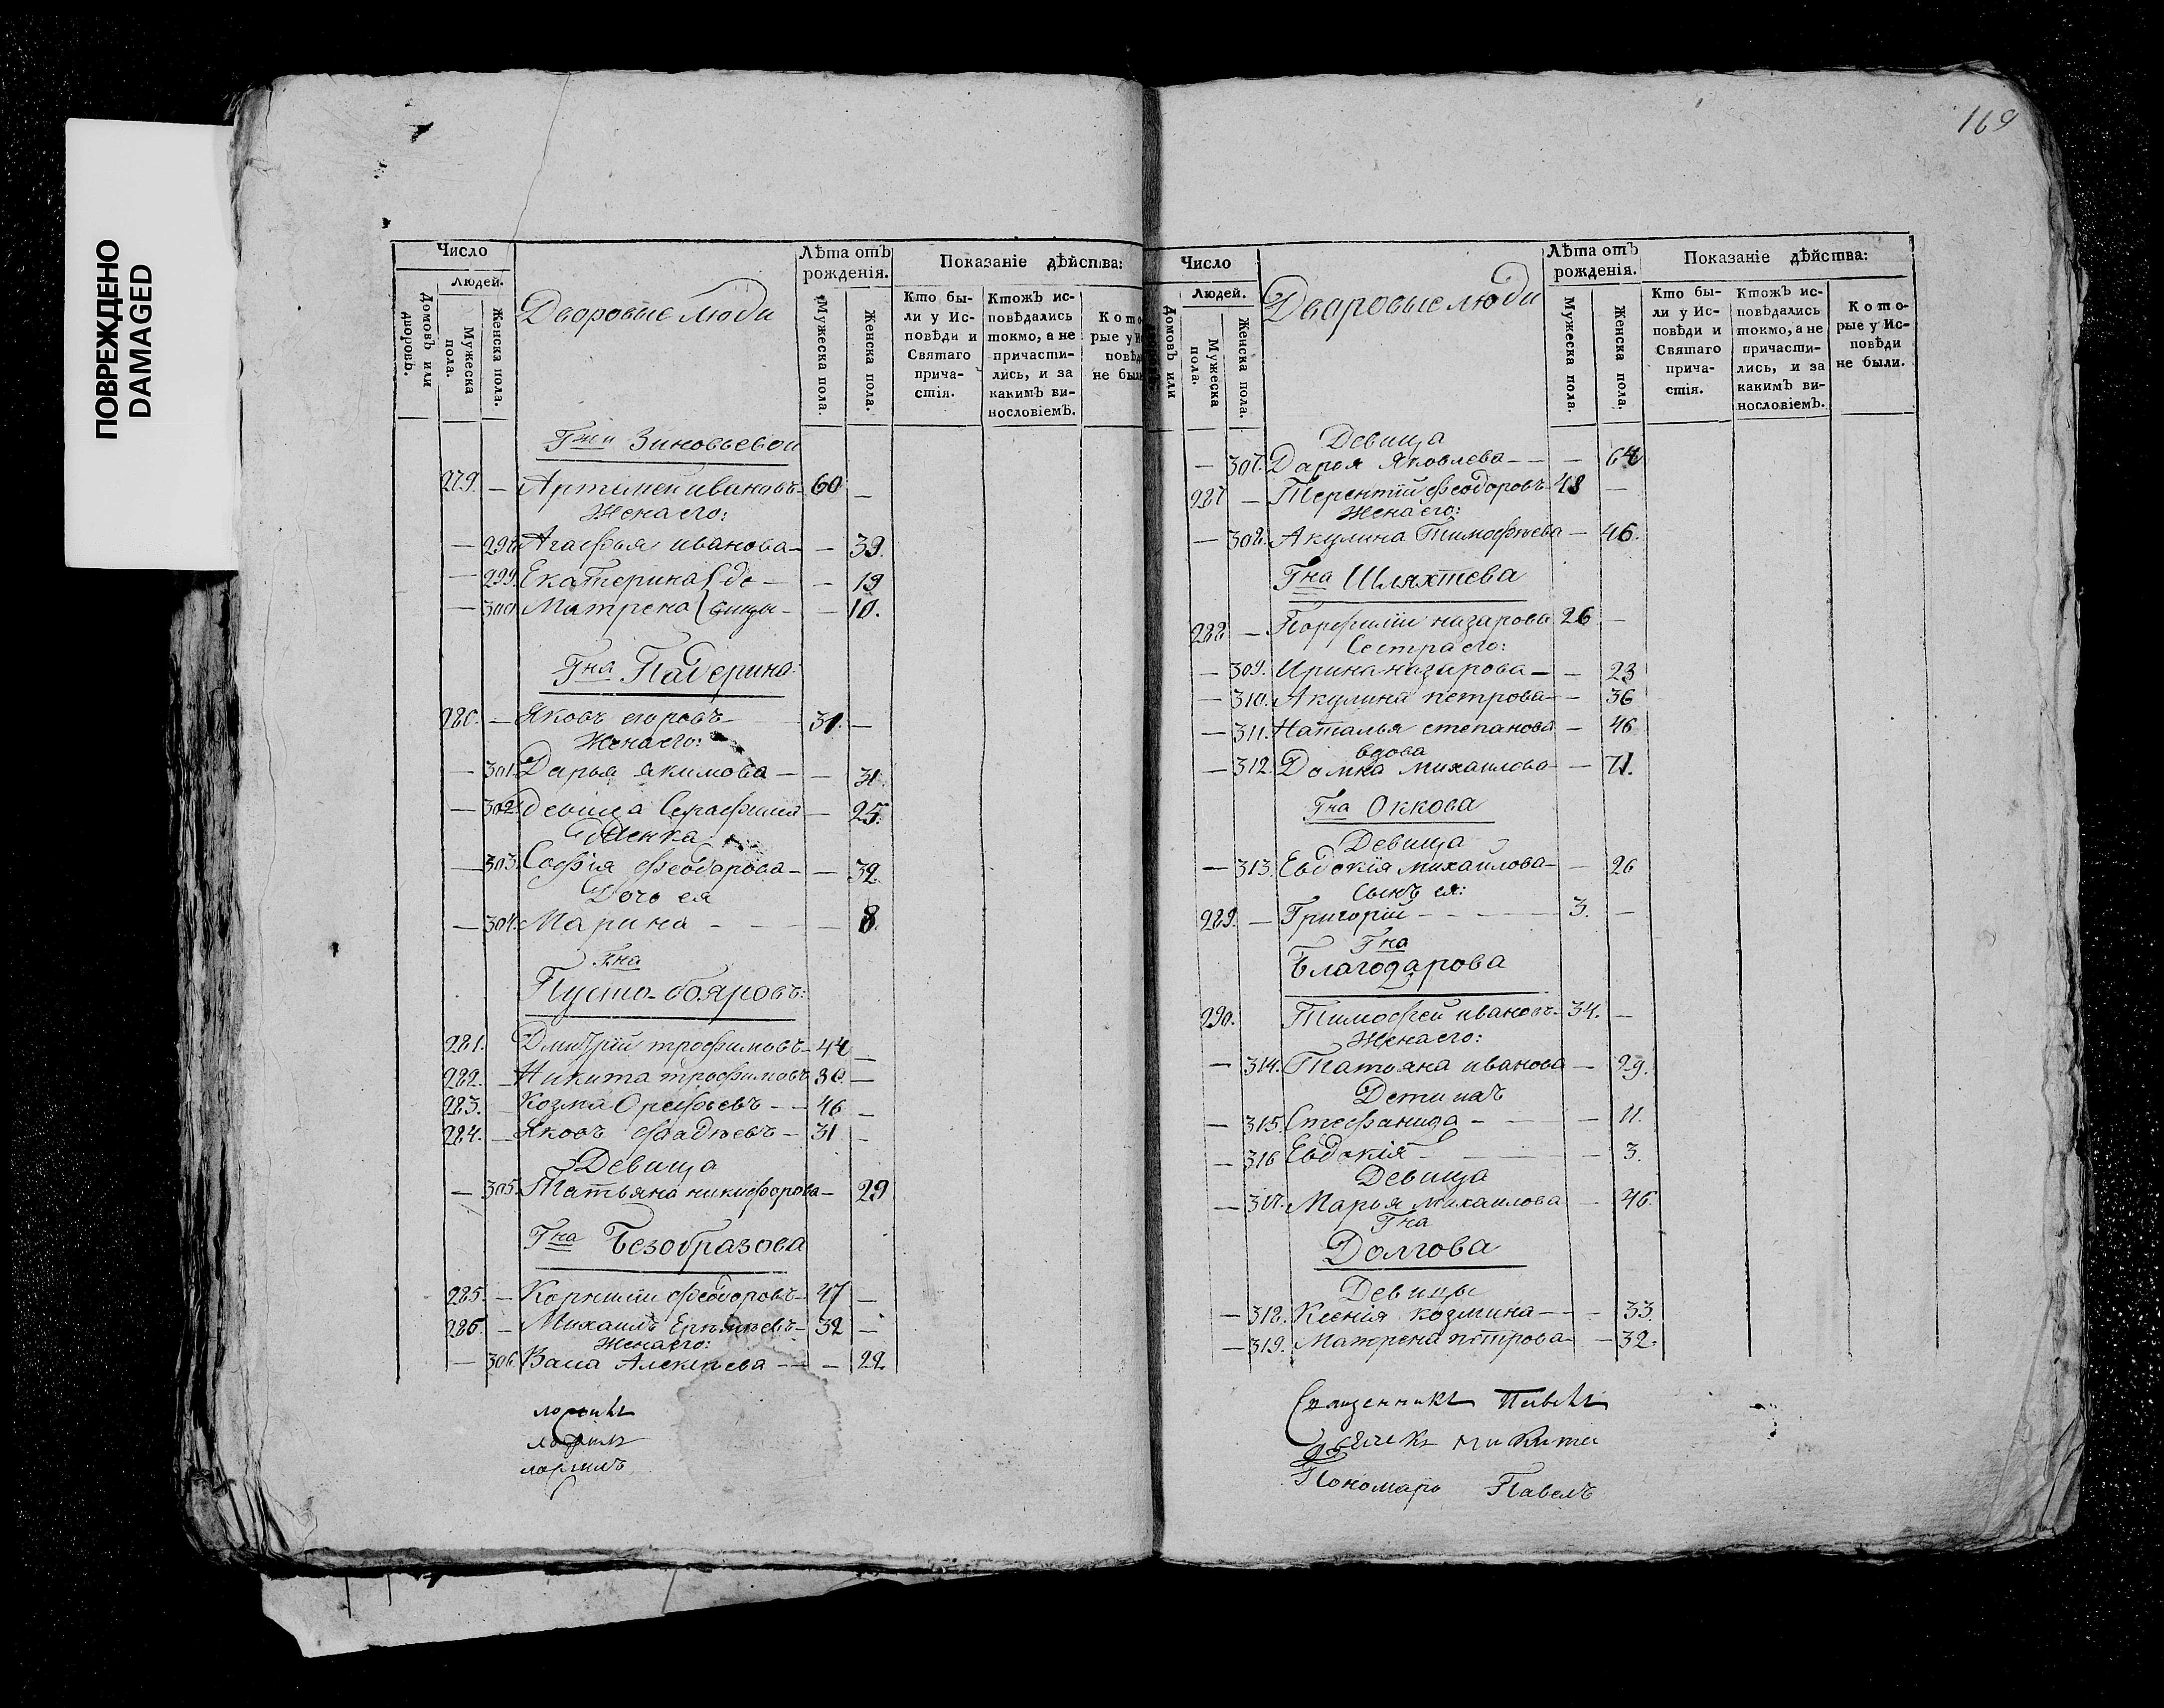 ПОВРЕЖДЕНО
DAMAGED
Число
Людей.
Домовъ или дворовъ.
Мужеска пола.
Женска пола.
Дворовые люди
Лѣта отъ рожденія.
Мужеска пола.
Женска пола.
Показаніе дѣйства:
Кто были у Исповѣди и Святаго причастія.
Ктожъ исповѣдались токмо, а не причастились, и за какимъ винословіемъ.
Г-жи Зиновьевой
279. — Артемей ивановъ — 60 —
Жена его:
— 298 Агафья иванова — — 39.
— 299. Екатерина де — — 19
— 300 Матрена вицы — — 10.
Г-на Падерина:
280. — Яковъ егоровъ — 31. —
Жена его:
— 301. Дарья якимова — — 31.
— 302. девица Серафима — 25.
Женка
— 303. Софія Феодорова — — 32.
Дочь ея
— 304. Марина — — 8.
Г-на
Пусто-бояровъ:
281. Дмитрій трофимовъ — 44 —
282. — Никита трофимовъ 30. —
283. — Козма Орефьевъ — — 46 —
284. — Яковъ Фадѣевъ — 31 —
Девица
— 305. Татьяна никифорова — 29
Г-на Безобразова
285. — Корнилий Феодоровъ — 47 —
286. — Михаилъ — 32 —
Жена его:
— 306. Васа Алекѣева — — 22
169
Число
Людей.
Домовъ или
Мужеска пола.
Женска пола.
Дворовые люди
Лѣта отъ рожденія.
Мужеска пола.
Женска пола.
Показаніе дѣйства:
Кто были у Исповѣди и Святаго причастія.
Ктожъ исповѣдались токмо, а не причастились, и за какимъ винословіемъ.
Которые у Исповѣди не были.
Девица
— 307. Дарья Яковлева — — — 64
287 — Терентій Феодоровъ 48 —
Жена его:
— 308. Акулина Тимофѣева — 46.
Г-на Шляхтева
288 — Порфилій назарова 26 —
Сестра его:
— 309. Ирина назарова — — 23
— 310. Акулина петрова — — 36
— 311. Наталья степанова — 46
вдова
— 312. Домна михаилова — — 71.
Г-на Оккова
Девица
— 313. Евдокія михаилова — — 26
Сынъ ея:
289. — Григорій — — — 3. —
Г-на
Благодарова
290. Тимофей ивановъ — 34. —
Жена его:
— 314. Татьяна иванова — 29.
Дети ихъ
— 315. Стефанида — — 11.
— 316 Евдокія — — 3.
Девица
— 317. Марья михаилова — 46.
Г-на
Долгова
Девицы
— 318. Ксенія козмина — — — 33.
— 319. Матрена петрова — — 32.
Священникъ Павелъ
Дьячекъ Никита
Пономарь Павелъ